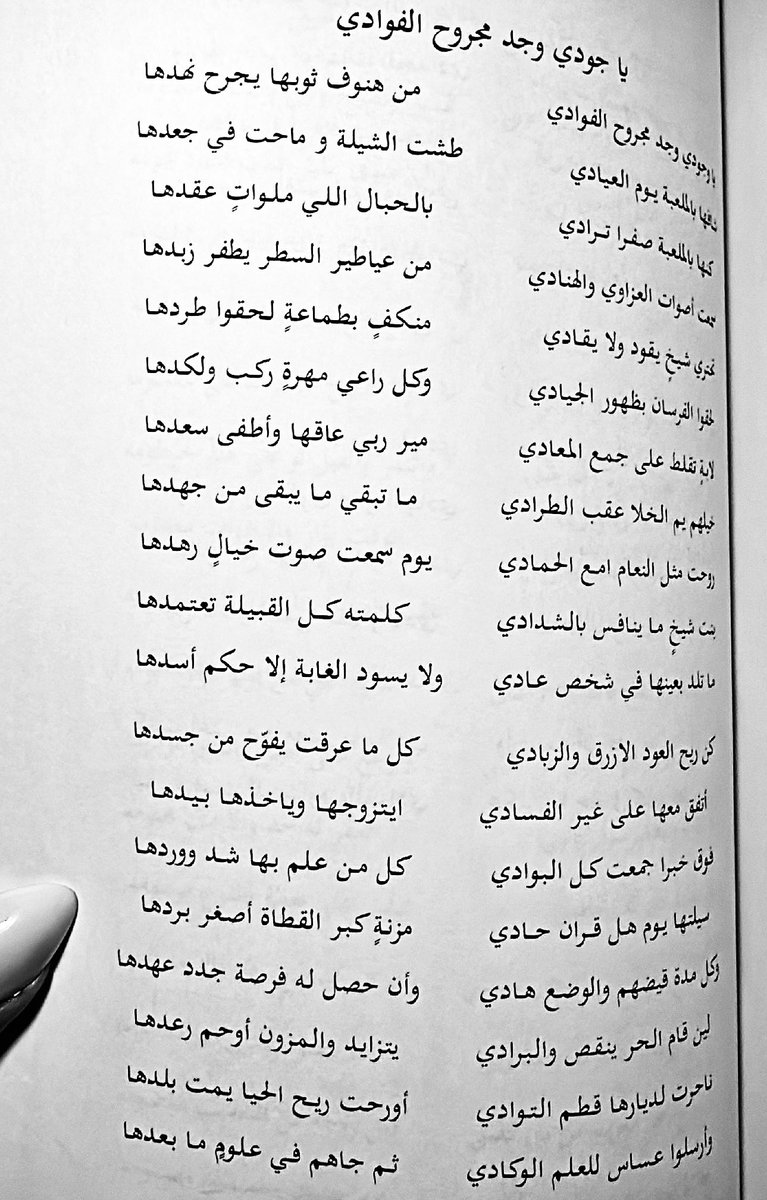 يا جودي وجد مجروح الفوادي
يا وجودي وجد مجروح الفوادي من هنوف ثوبها يجرح نهدها
شافها بالملعبة يوم العيادي طشت الشيلة و ماحت في جعدها
كنها بالملعبة صفرا ترادي بالحبال اللي ملواتٍ عقدها
سمعت أصوات العزاوي والهنادي من عياطير السطر يطفر زبدها
تحتري شيخٍ يقود ولا يقادي منكفٍ بطماعةٍ لحقوا طردها
لحقوا الفرسان بظهور الجيادي وكل راعي مهرةٍ ركب ولكدها
لابةٍ تقلط على جمع المعادي مير ربي عاقها وأطفى سعدها
خيلهم يم الخلا عقب الطرادي ما تبقي ما يبقى من جهدها
روحت مثل النعام امع الحمادي يوم سمعت صوت خيالٍ رهدها
بنت شيخٍ ما ينافس بالشدادي كلمته كل القبيلة تعتمدها
ما تلد بعينها في شخص عادي ولا يسود الغابة إلا حكم أسدها
كن ريح العود الازرق والزبادي كل ما عرقت يفوّح من جسدها
أتفق معها على غير الفسادي ايتزوجها وياخذها بيدها
فوق خبرا جمعت كل البوادي كل من علم بها شد ووردها
سيلتها يوم هل قران حادي مزنةٍ كبر القطاة أصغر بردها
وكل مدة قيضهم والوضع هادي وأن حصل له فرصة جدد عهدها
لين قام الحر ينقص والبرادي يتزايد والمزون أوحم رعدها
ناحرت لديارها قطم التوادي أورحت ريح الحيا يمت بلدها
وأرسلوا عساس للعلم الوكادي ثم جاهم في علومٍ ما بعدها